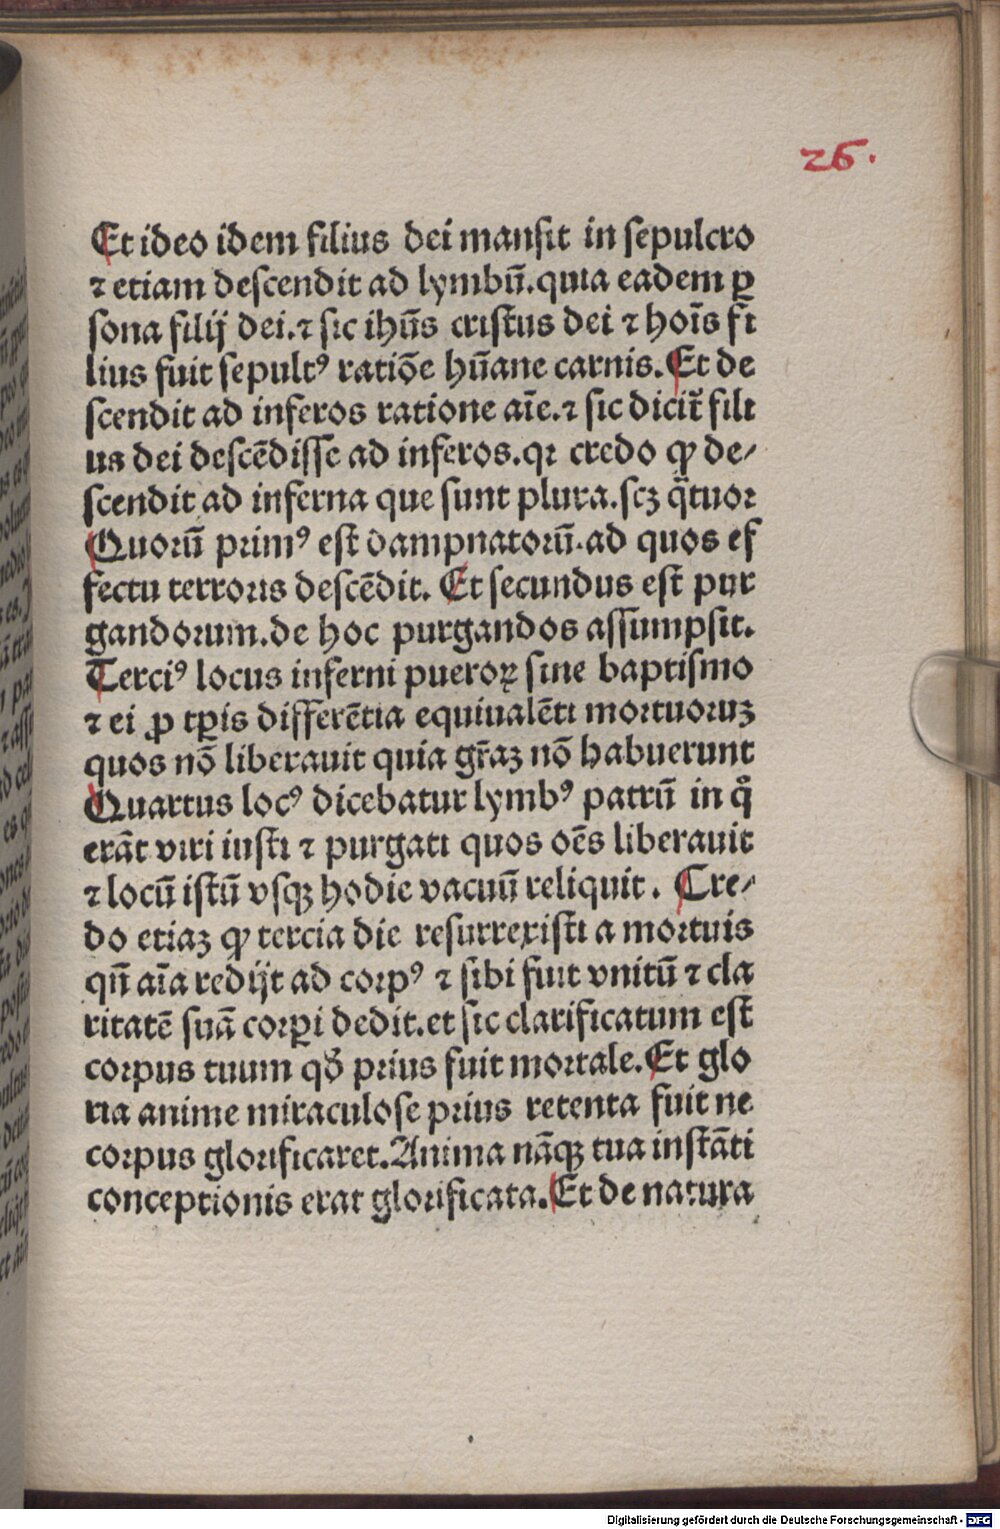 26.
Et ideo idem filius dei mansit in sepulcro
⁊ etiam descendit ad lymbū.quia eadem ꝑ
sona filij dei.⁊ sic ihūs cristus dei ⁊ hoīs fi
lius fuit sepultꝰ ratiōe hūane carnis.Et de
scendit ad inferos ratione aīe.⁊ sic dicit̄ fili
us dei descēdisse ad inferos.qꝛ credo ꝙ de/
scendit ad inferna que sunt plura.scꝫ q̄tuor
Quorū primꝰ est dampnatorū.ad quos ef
fectu terroris descēdit. Et secundus est pur
gandorum.de hoc purgandos assumpsit.
Terciꝰ locus inferni pueroꝝ sine baptismo
⁊ ei ꝓ tꝑis differētia equiualēti mortuoruꝫ
quos nō liberauit quia gr̄aꝫ nō habuerunt
Quartus locꝰ dicebatur lymbꝰ patrū in q̊
erāt viri iusti ⁊ purgati quos oēs liberauit
⁊ locū istū vsqꝫ hodie vacuū reliquit. Cre/
do etiaꝫ ꝙ tercia die resurrexisti a mortuis
qn̄ aīa redijt ad corpꝰ ⁊ sibi fuit vnitū ⁊ cla
ritatē suā corꝑi dedit.et sic clarificatum est
corpus tuum qđ prius fuit mortale.Et glo
ria anime miraculose prius retenta fuit ne
corpus glorificaret.Anima nāqꝫ tua instāti
conceptionis erat glorificata.Et de natura
Digitalisierung gefördert durch die Deutsche Forschungsgemeinschaft - DFG